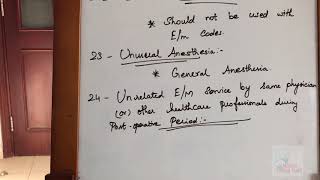 * Should not be used with
E/m Codes.
23 - Unusual Anesthesia:-
* General Anesthesia
24 - Unrelated E/M Service by same physician
(or) other healthcare professionals during
Post-operative Period:-